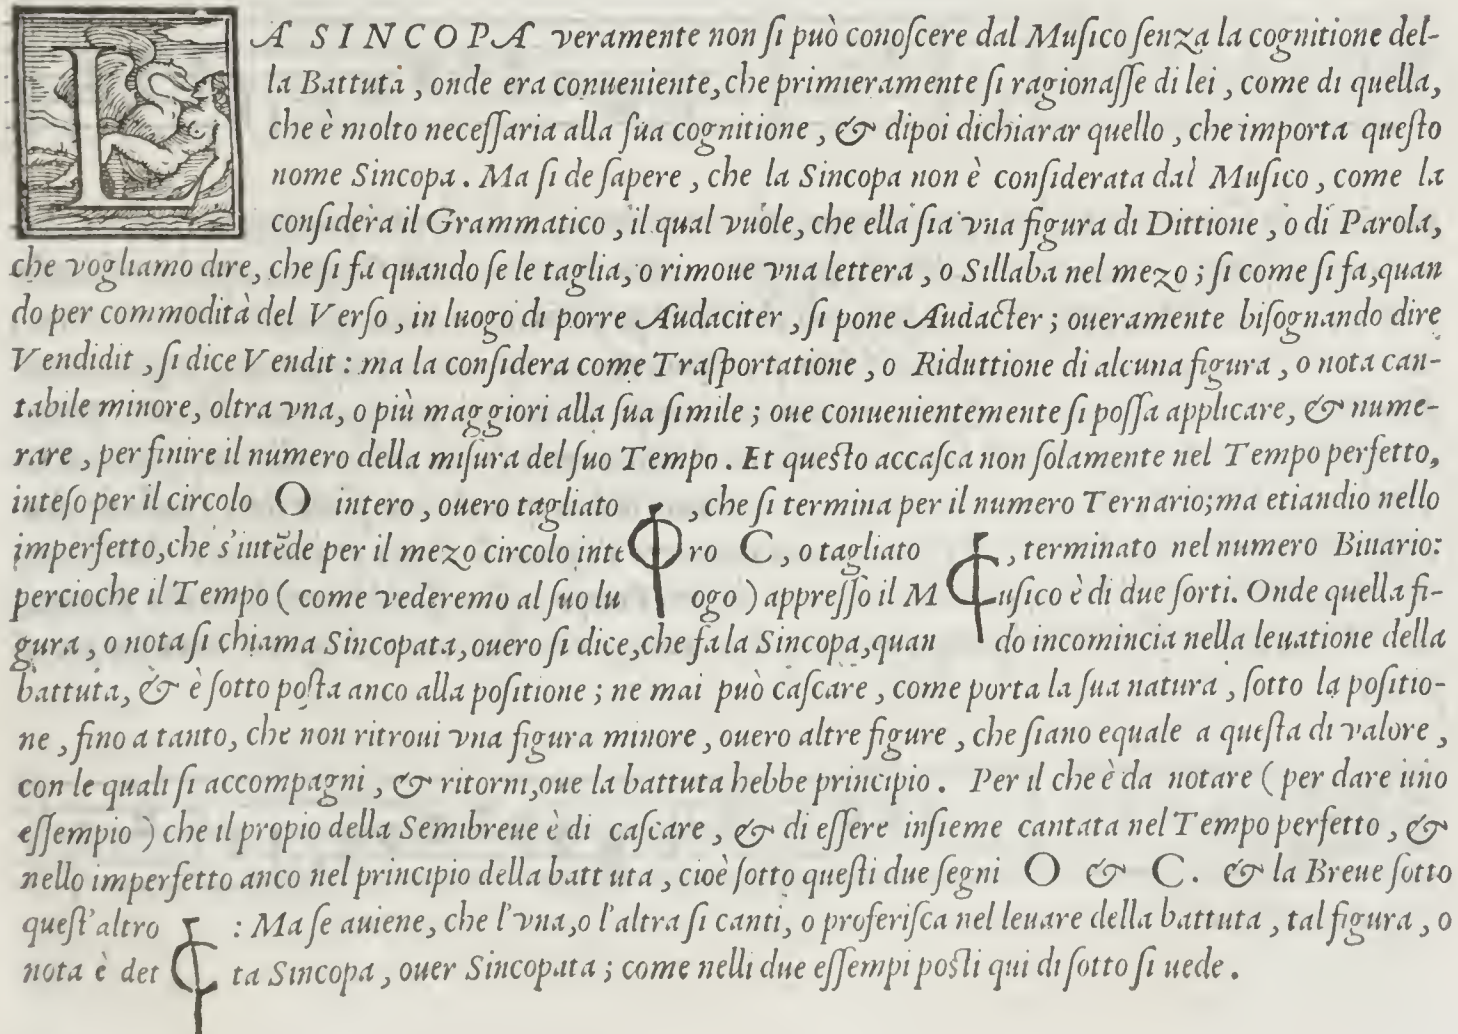 LA SINCOPA veramente non ſi può conoſcere dal Muſico ſenza la cognitione del-
la Battuta, onde era conueniente, che primieramente ſi ragionaſſe di lei, come di quella,
che è molto neceſſaria alla ſua cognitione, & dipoi dichiarar quello, che importa queſto
nome Sincopa. Ma ſi de ſapere, che la Sincopa non è conſiderata dal Muſico, come la
conſidera il Grammatico, il qual vuole, che ella ſia vna figura di Dittione, o di Parola,
che vogliamo dire, che ſi fa quando ſe le taglia, o rimoue vna lettera, o Sillaba nel mezo; ſi come ſi fa, quan
do per commodità del Verſo, in luogo di porre Audaciter, ſi pone Audacter; oueramente biſognando dire
Vendidit, ſi dice Vendit: ma la conſidera come Traſportatione, o Riduttione di alcuna figura, o nota can-
tabile minore, oltra vna, o più maggiori alla ſua ſimile; oue conuenientemente ſi poſſa applicare, & nume-
rare, per finire il numero della miſura del ſuo Tempo. Et queſto accaſca non ſolamente nel Tempo perfetto,
inteſo per il circolo O intero, ouero tagliato ⌽, che ſi termina per il numero Ternario; ma etiandio nello
imperfetto, che s'intēde per il mezo circolo intero C, o tagliato ₵, terminato nel numero Binario:
percioche il Tempo (come vederemo al ſuo luogo) appreſſo il Muſico è di due ſorti. Onde quella fi-
gura, o nota ſi chiama Sincopata, ouero ſi dice, che fa la Sincopa, quando incomincia nella leuatione della
battuta, & è ſotto poſta anco alla poſitione; ne mai può caſcare, come porta la ſua natura, ſotto la poſitio-
ne, fino a tanto, che non ritroui vna figura minore, ouero altre figure, che ſiano equale a queſta di valore,
con le quali ſi accompagni, & ritorni, oue la battuta hebbe principio. Per il che è da notare (per dare uno
eſſempio) che il propio della Semibreue è di caſcare, & di eſſere inſieme cantata nel Tempo perfetto, &
nello imperfetto anco nel principio della batt uta, cioè ſotto queſti due ſegni O & C. & la Breue ſotto
queſt'altro ₵: Ma ſe auiene, che l'vna, o l'altra ſi canti, o proferiſca nel leuare della battuta, tal figura, o
nota è detta Sincopa, ouer Sincopata; come nelli due eſſempi poſti qui di ſotto ſi uede.